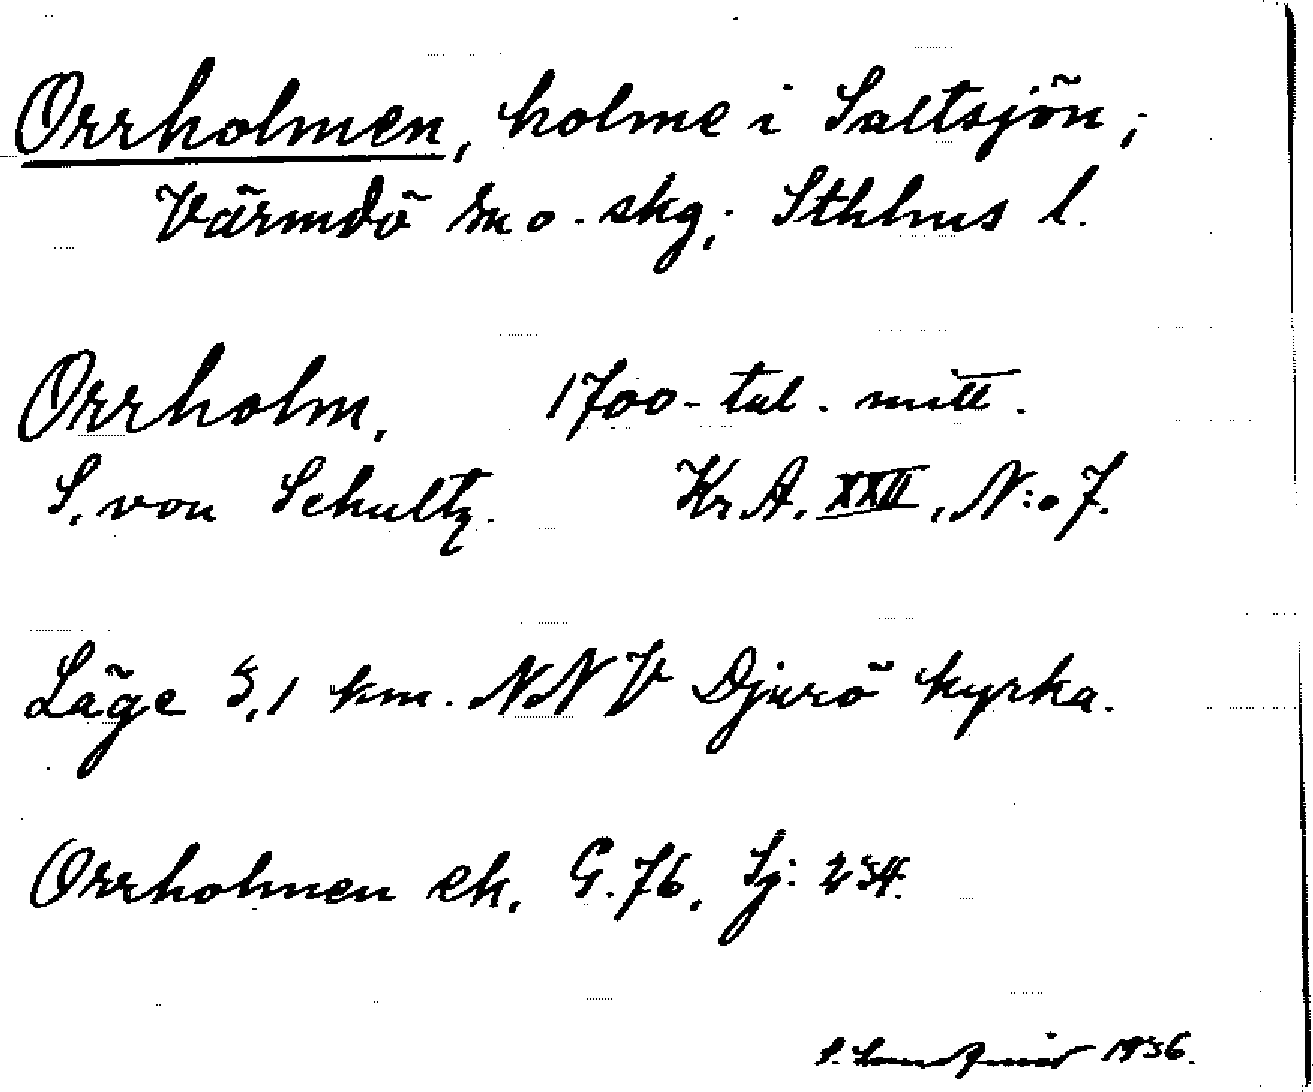 Orrholmen, holme i Saltsjön;
Värmdö sn o. skg; Sthlms l.
Orrholm, 1700-tal. mitt.
S. von Schultz. Kr.A. XXII, N:o 7.
Läge 3,1 km. NNV Djurö kyrka.
Orrholmen ek. G. 76. Sj: 234.
1936.